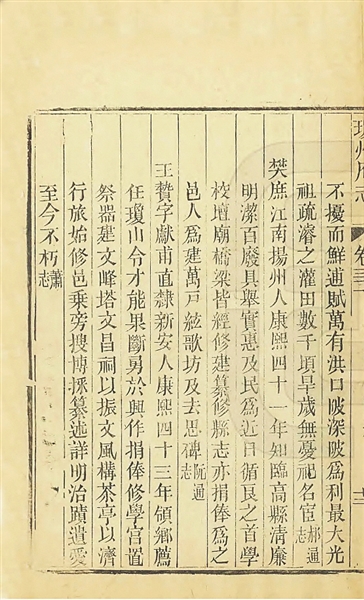 瓊州府志 卷三 十二
不擾而鮮逋賦萬有洪口陂深陂為利最大光
祖疏濬之灌田數千頃旱歲無憂祀名宦郝通志
樊庶江南揚州人康熙四十一年知臨高縣清廉
明潔百廢具舉實惠及民為近日循良之首學
校壇廟橋梁皆經修建纂修縣志亦捐俸為之
邑人為建萬戸絃歌坊及去思碑阮通志
王贄字獻甫直隸新安人康熙四十三年領鄉薦
任瓊山令才能果斷勇於興作捐俸修學宮置
祭器建文峰塔文昌祠以振文風構茶亭以濟
行旅始修邑乘旁搜博採纂述詳明治蹟遺愛
至今不朽蕭志